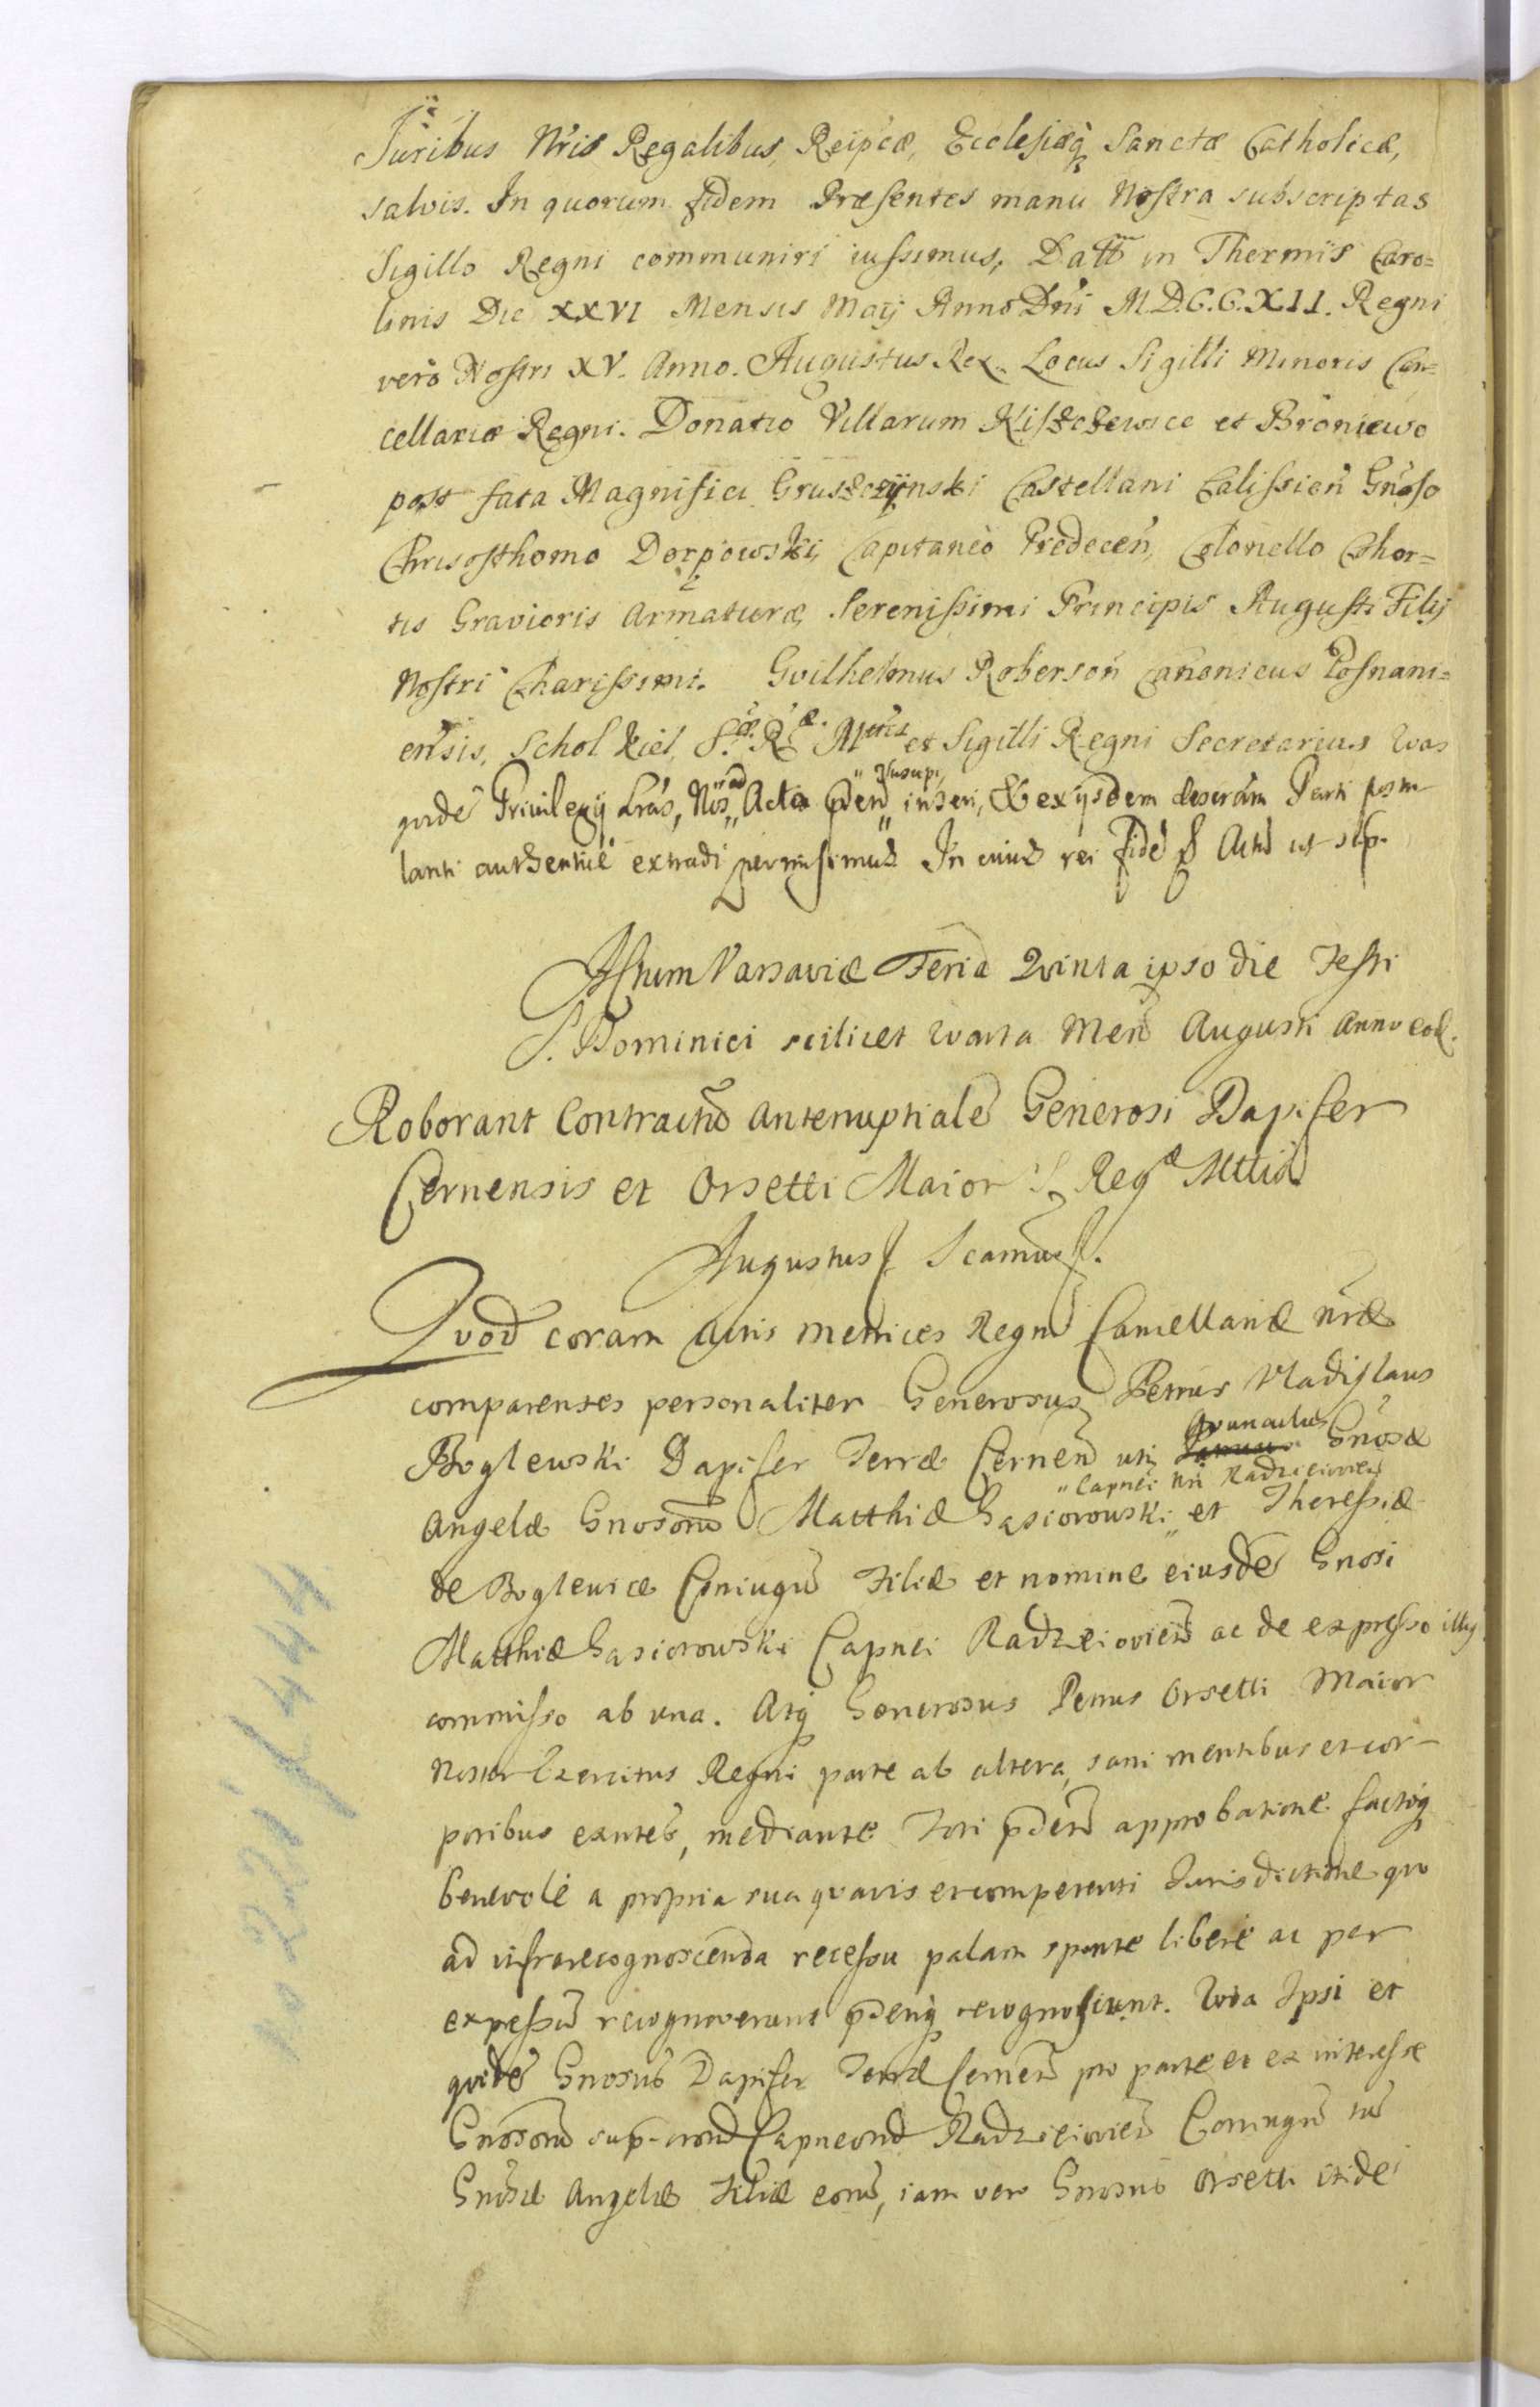 Juribus Nris Regalibus, Reipcæ, Ecclesiæq Sanctæ Catholicæ,
salvis. In quorum fidem Præsentes manu Nostra subscriptas
Sigillo Regni communiri iussimus, Datt in Thermis Caro=
linis Die XXVI Mensis Maij Anno Dni M.D.C.C.XII. Regni
vero Nostri XV. Anno. Augustus Rex. Locus Sigilli Minoris Can=
cellariæ Regni. Donatio Villarum Kiszczewice et Broniewo
post fata Magnifici Gruszczynski Castellani Calissien Gnoso
Chrisosthomo Dorpowski, Capitaneo Predecen, Colonello Cohor=
tis Gravioris Armaturæ, Serenissimi Principis Augusti Filij
Nostri Charissimi. Gvilhelmus Roberson Canonicus Posnani=
ensis, Schol Kiel, S. R. Mttis et Sigilli Regni Secretarius Quas
quide Privilegij Lras, Nos ad Acta pden Insupr, inseri, & ex ijsdem descram Parti postu
lanti authentice extradi permisimus In cuius rei fide & Actu ut sup.
Actum Varsaviæ Feria Quinta ipso die Festi
S. Dominici scilicet Quarta Men Augusti Anno eod.
Roborant Contractu Antenuptiale Generosi Dapifer
Cernensis et Orsetti Maior S Reg Mttis
Augustus
Quod coram Actis metrices Regni Cancellariæ nræ
comparentes personaliter Generosus Petrus Vladislaus
Boglewski Dapifer Terræ Cernen uti Avunculus Gnosæ
Angelæ Gnosoru Matthiæ Gąsiorowski Capnei nri Radzieiovien et Theressiæ
de Boglewice Coniugu Filiæ et nomine eiusde Gnosi
Matthiæ Gąsiorowski Capnei Radzieiovien ac de expresso illij
commisso ab una. Atq Generosus Petrus Orsetti Maior
Noster Exercitus Regni parte ab altera, sani mentibus et cor-
poribus exntes, mediante Fori pden approbatione factoq
benevole a propria sua quavis et competenti Jurisdictione quo
ad infrarecognoscenda recessu palam sponte libere ac per
expressu recognoverunt pdenq recognoscunt. Quia Ipsi et
quide Gnosus Dapifer Terræ Cernen pro parte et ex interesse
Gnosoru Capneoru Radzieiovien Coniugu tu
Gnosæ Angelæ Filiæ eoru, iam vero Gnosus Orsetti itide